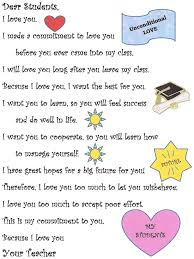 Dear Students,
I love you.
Unconditional
LOVE
I made a commitment to love you
before you ever came into my class.
I will love you long after you leave my class.
Because I love you, I want the best for you.
I want you to learn, so you will feel success
and do well in life.
I want you to cooperate, so you will learn how
to manage yourself.
FUTURE
I have great hopes for a big future for you!
Therefore, I love you too much to let you misbehave.
I love you too much to accept poor effort.
This is my commitment to you.
Because I love you
Your Teacher
MY
STUDENTS